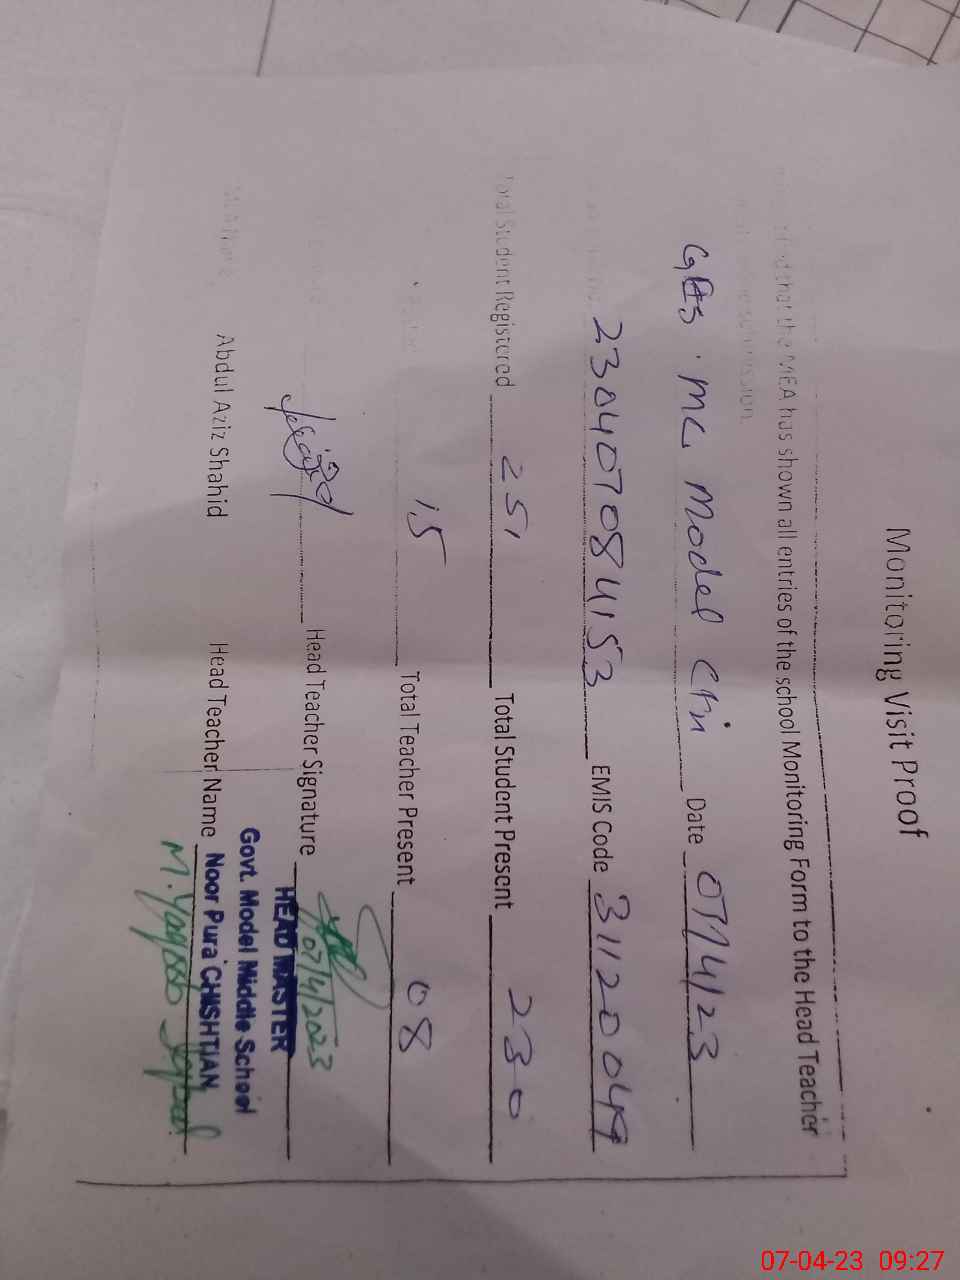 Monitoring Visit Proof
that the MEA has shown all entries of the school Monitoring Form to the Head Teacher
submission.
GES. MC Model Ctn Date 07/4/23
230407084153 EMIS Code 31120049
Total Student Registered 251 Total Student Present 230
15 Total Teacher Present 08
Head Teacher Signature
07/4/2023
HEAD MASTER
Govt. Model Middle School
Noor Pura CHISHTIAN
Abdul Aziz Shahid Head Teacher Name
07-04-23 09:27